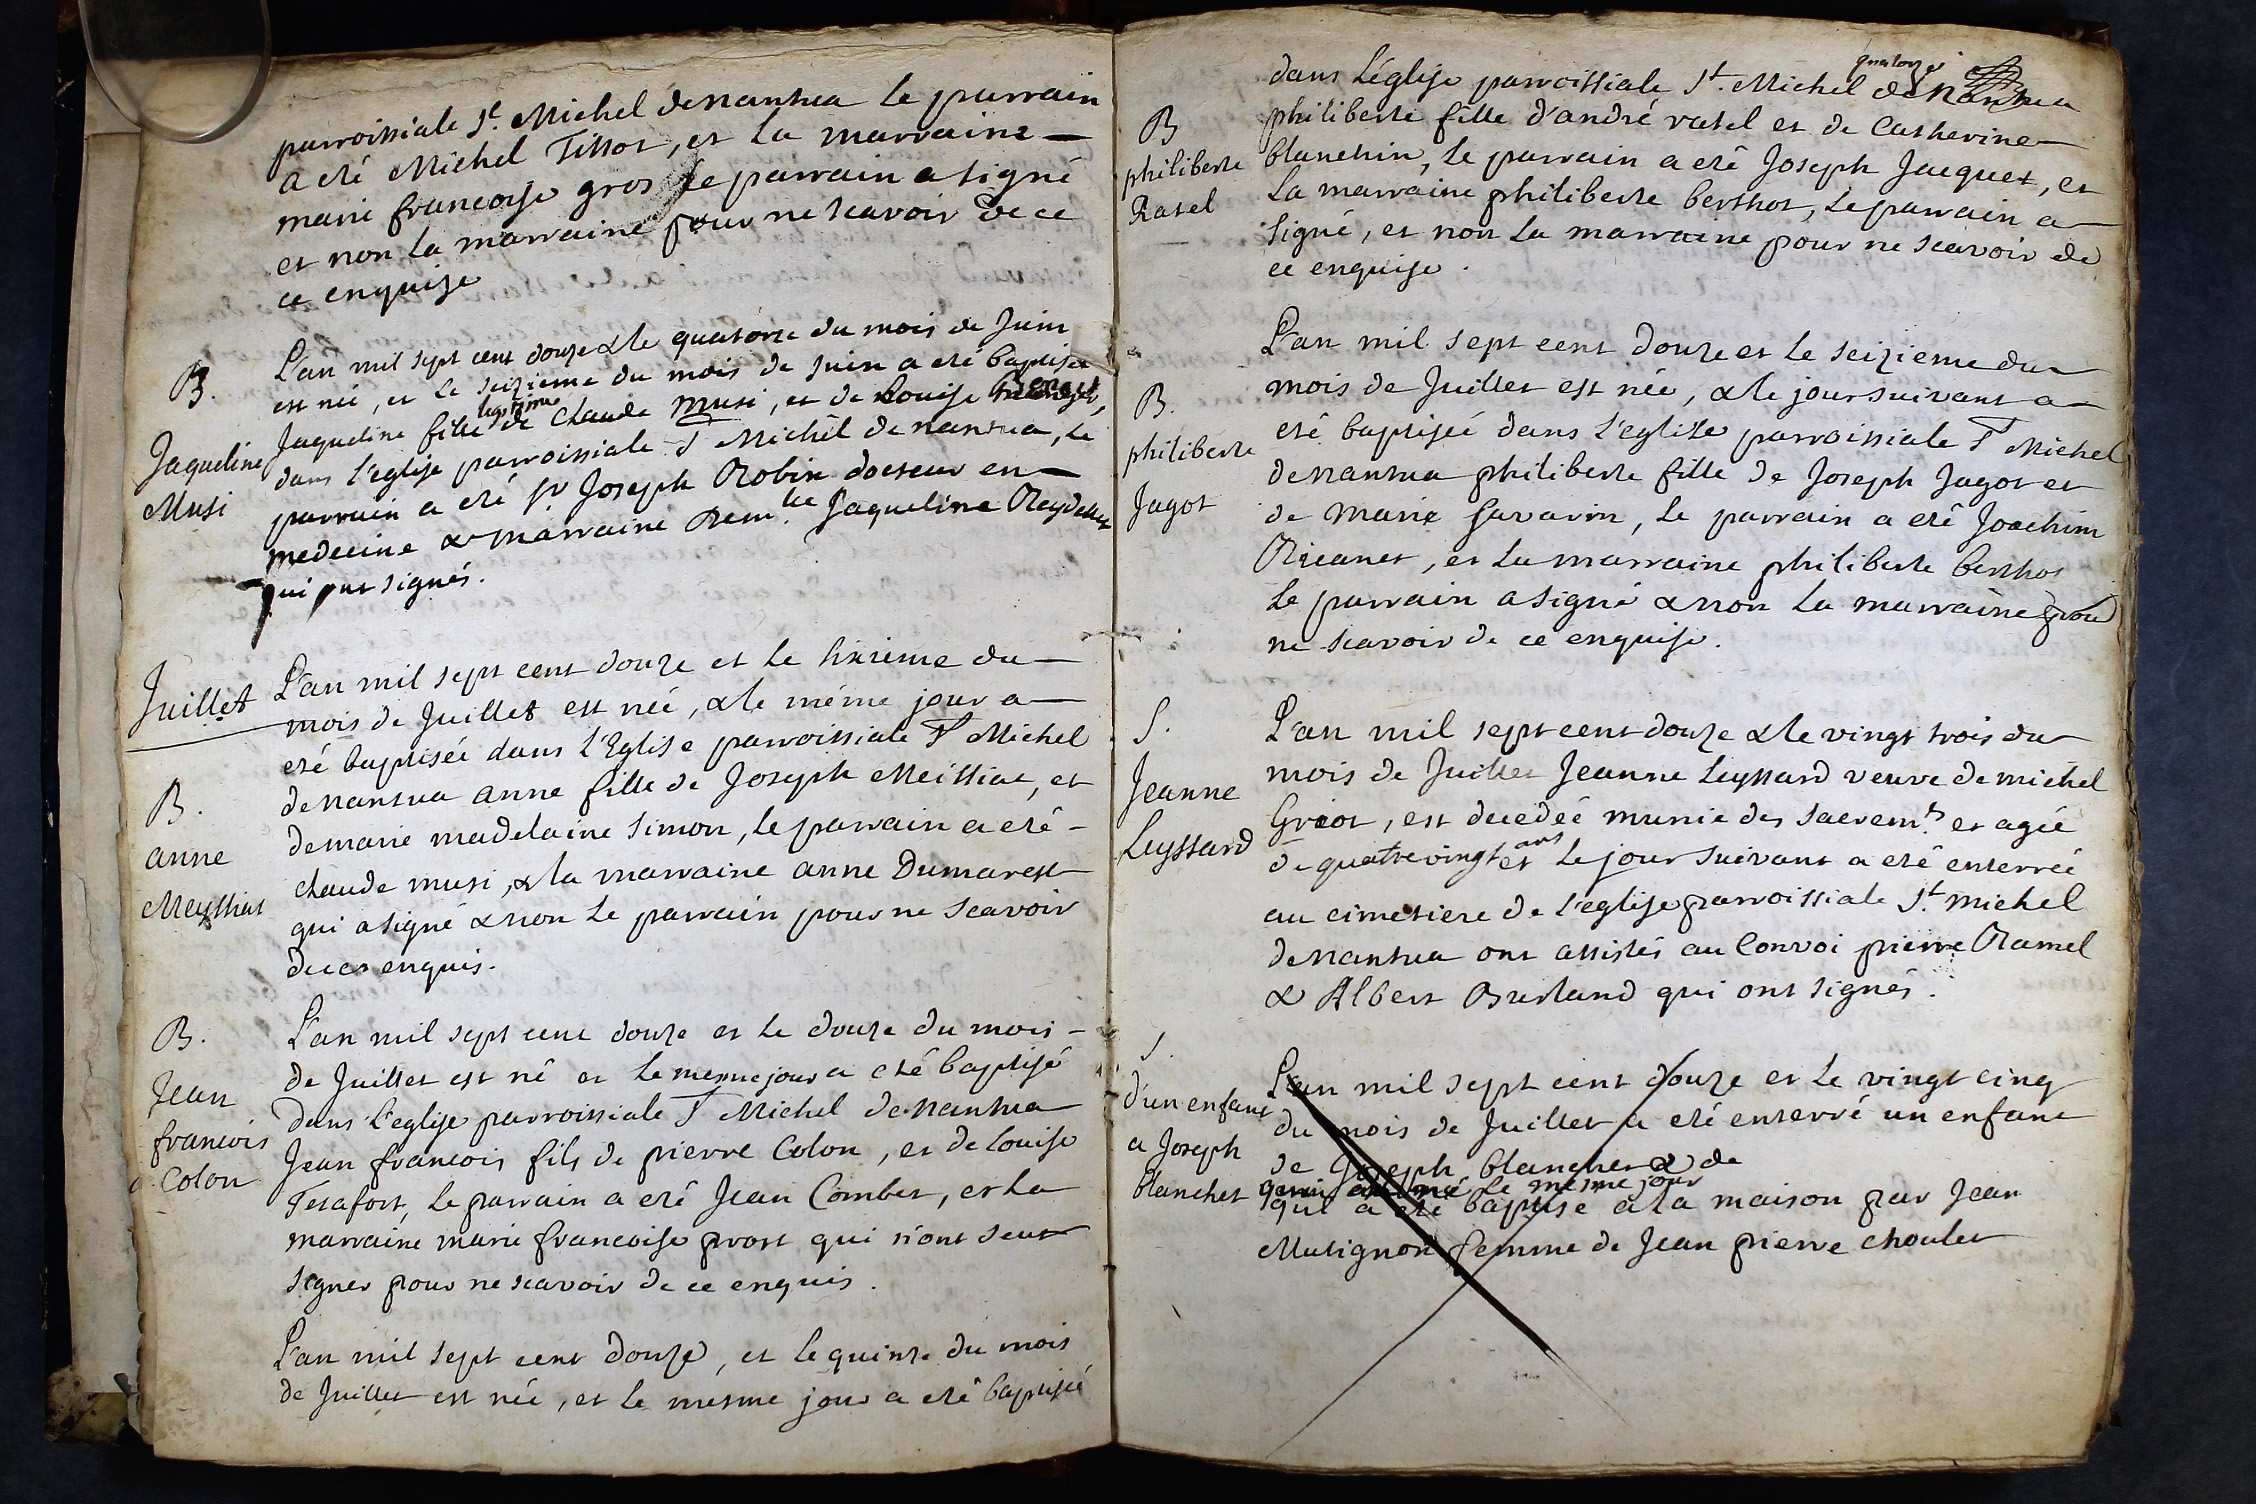 parroissiale St. Michel de nantua le parrain
a eté Michel Tissot, et la marraine
marie francoise gros le parrain a signé
et non la marraine pour ne scavoir de ce
ce enquise
B.
Jaqueline
Musi
L'an mil sept cent douze & le quatorze du mois de Juin
est née, et le seizieme du mois de Juin a eté baptisée
legitime
Jaqueline fille de Claude Musi, et de Louise
dans l'eglise parroissiale St Michel de nantua, le
parrain a eté Sr Joseph Robin docteur en
medecine & marraine Dem.lle Jaqueline Reydellet
qui ont signés.
Juillet
L'an mil sept cent douze et le sixieme du
mois de Juillet est née, & le méme jour a
eté baptisée dans l'Eglise parroissiale St Michel
B.
anne
Meyssiat
de nantua anne fille de Joseph Meissiat, et
de marie madelaine Simon, le parrain a eté
claude musi, & la marraine anne Dumarest
qui a signé & non le parrain pour ne scavoir
de ce enquis.
B.
Jean
francois
Colon
L'an mil sept cent douze et le douze du mois
de Juillet est né et le mesme jour a eté baptisé
dans l'eglise parroissiale St Michel de nantua
Jean francois fils de pierre Colon, et de Louise
Terafort, le parrain a eté Jean Combet, et la
marraine marie francoise prost qui n'ont sceu
signer pour ne scavoir de ce enquis.
L'an mil sept cent douze, et le quinze du mois
de Juillet est née, et le mesme jour a eté baptisée
quatorze
dans l'église parroissiale St. Michel de Nantua
B
philiberte
Ratel
philiberte fille d'andré ratel et de Catherine
blanchin, le parrain a eté Joseph Jacquet, et
La marraine philiberte berthot, le parrain a
signé, et non la marraine pour ne scavoir de
ce enquise.
B.
philiberte
Jagot
L'an mil sept cent douze et le seizieme du
mois de Juillet est née, & le jour suivant a
eté baptisée dans l'eglise parroissiale St Michel
de nantua philiberte fille de Joseph Jagot et
de Marie Savarin, le parrain a eté Joachim
Ricanet, et la marraine philiberte berthot
le parrain a signé & non la marraine pour
ne scavoir de ce enquise.
S.
Jeanne
Leyssard
L'an mil sept cent douze & le vingt trois du
mois de Juillet Jeanne Leyssard veuve de michel
Griot, est decedeé munie des sacrem.ts et agée
ans
de quatre vingt et le jour suivant a eté enterrée
au cimetiere de l'eglise parroissiale St. michel
de nantua ont assistés au Convoi pierre Ramel
& Albert Burland qui ont signés.
S.
d'un enfant
a Joseph
blanchet
L'an mil sept cent douze et le vingt cinq
du mois de Juillet a eté enterré un enfant
de Joseph blanchet & de
né le mesme jour
qui a eté baptisé a la maison par Jean
Mutignon femme de Jean pierre choulet